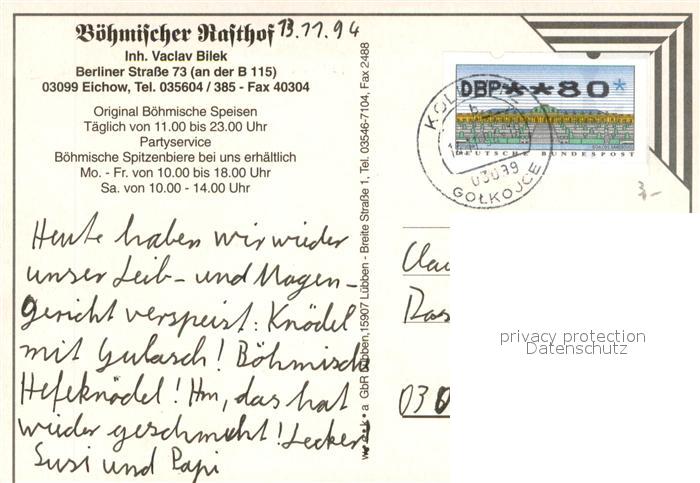 Böhmischer Rasthof 13.11.94
Inh. Vaclav Bilek
Berliner Straße 73 (an der B 115)
03099 Eichow, Tel. 035604 / 385 - Fax 40304
Original Böhmische Speisen
Täglich von 11.00 bis 23.00 Uhr
Partyservice
Böhmische Spitzenbiere bei uns erhältlich
Mo. - Fr. von 10.00 bis 18.00 Uhr
Sa. von 10.00 - 14.00 Uhr
Heute haben wir wieder
unser Leib- und Magen-
gericht verspeist: Knödel
mit Gulasch! Böhmisch
Hefeknödel! Hm, das hat
wieder geschmeckt! Lecker!
Susi und Papi
GbR Lübben, 15907 Lübben - Breite Straße 1, Tel. 03546-7104, Fax 2488
DBP**80*
DEUTSCHE BUNDESPOST
KOL
03099
GOŁKOJCE
3,-
Clau
Das
030
privacy protection
Datenschutz